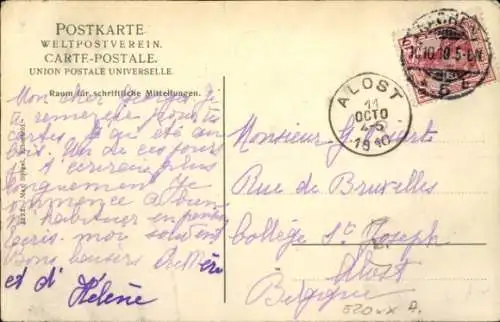 POSTKARTE
WELTPOSTVEREIN.
CARTE-POSTALE.
UNION POSTALE UNIVERSELLE.
Raum für schriftliche Mitteilungen.
Mon cher Georges Je
te remercie pour tes
cartes
bois. Un de ces jours
je t'écrirai plus
longuement. Je
commence à bien
m'habituer en pension
écris-moi souvent
Bons baisers
et d'
Hélène
ALOST
11
OCTO
4-5
1910
10.10.10.5-6N
Monsieur G.
Rue de Bruxelles
Collège St Joseph
Alost
Belgique